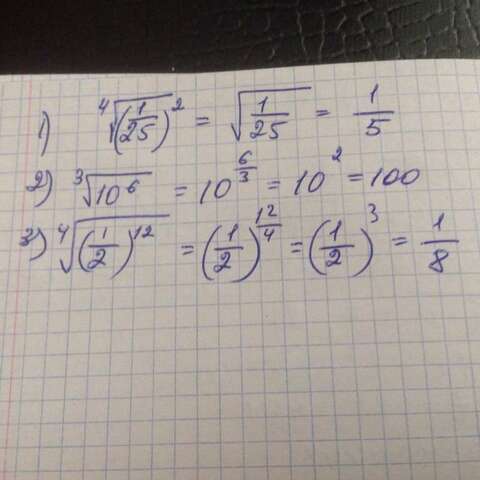 1) ⁴√(1/25)² = √1/25 = 1/5
2) ³√10⁶ = 10^(6/3) = 10² = 100
3) ⁴√(1/2)¹² = (1/2)^(12/4) = (1/2)³ = 1/8